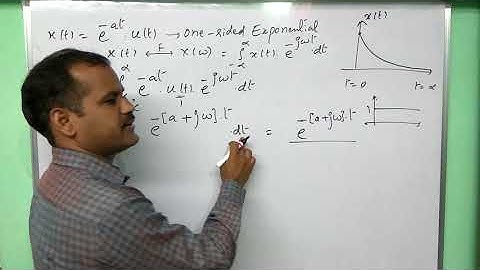 x(t) = e^{-at} . u(t) → One-sided Exponential
x(t) ⟷^{F} X(ω) = ∫_{-∞}^{∞} x(t) . e^{-jωt} . dt
e^{-at} . u(t) . e^{-jωt} . dt
e^{-[a+jω].t} . dt = e^{-[a+jω].t}
x(t)
t=0
t=∞
1